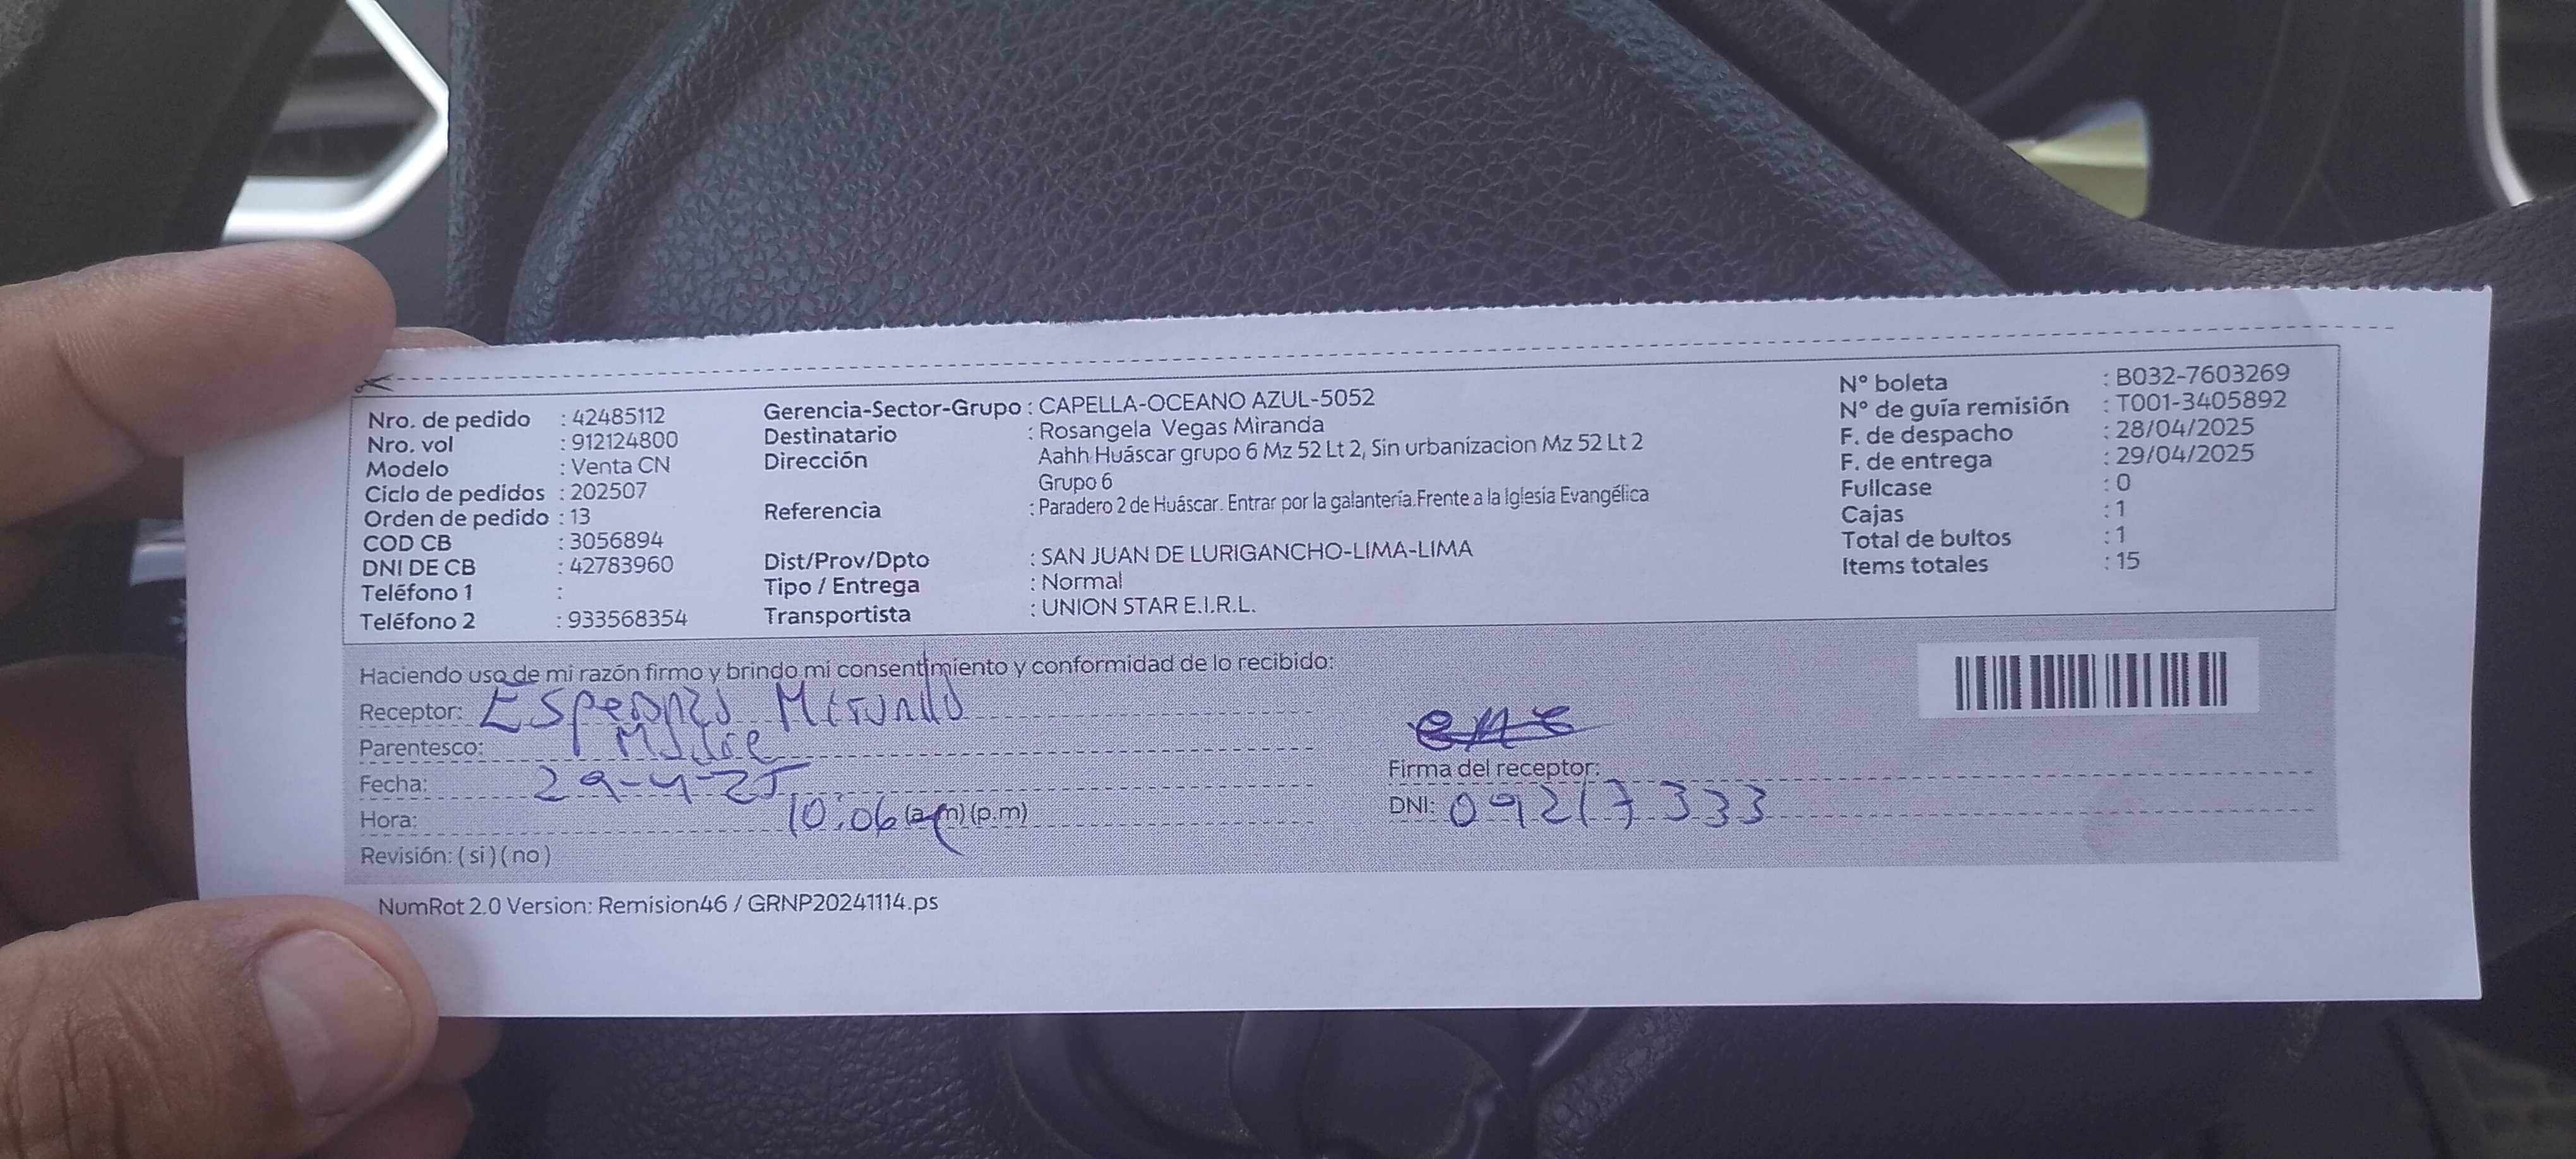 Nro. de pedido : 42485112
Nro. vol : 912124800
Modelo : Venta CN
Ciclo de pedidos : 202507
Orden de pedido : 13
COD CB : 3056894
DNI DE CB : 42783960
Teléfono 1 :
Teléfono 2 : 933568354
Gerencia-Sector-Grupo : CAPELLA-OCEANO AZUL-5052
Destinatario : Rosangela Vegas Miranda
Dirección Aahh Huáscar grupo 6 Mz 52 Lt 2, Sin urbanizacion Mz 52 Lt 2
Grupo 6
Referencia : Paradero 2 de Huáscar. Entrar por la galantería.Frente a la Iglesia Evangélica
Dist/Prov/Dpto : SAN JUAN DE LURIGANCHO-LIMA-LIMA
Tipo / Entrega : Normal
Transportista : UNION STAR E.I.R.L.
N° boleta : B032-7603269
N° de guía remisión : T001-3405892
F. de despacho : 28/04/2025
F. de entrega : 29/04/2025
Fullcase : 0
Cajas : 1
Total de bultos : 1
Items totales : 15
Haciendo uso de mi razón firmo y brindo mi consentimiento y conformidad de lo recibido:
Receptor: Esperanza Miranda
Parentesco: Madre
Fecha: 29-4-25
Hora: 10:06 (a.m) (p.m)
Revisión: ( si ) ( no )
Firma del receptor:
DNI: 09217333
NumRot 2.0 Version: Remision46 / GRNP20241114.ps